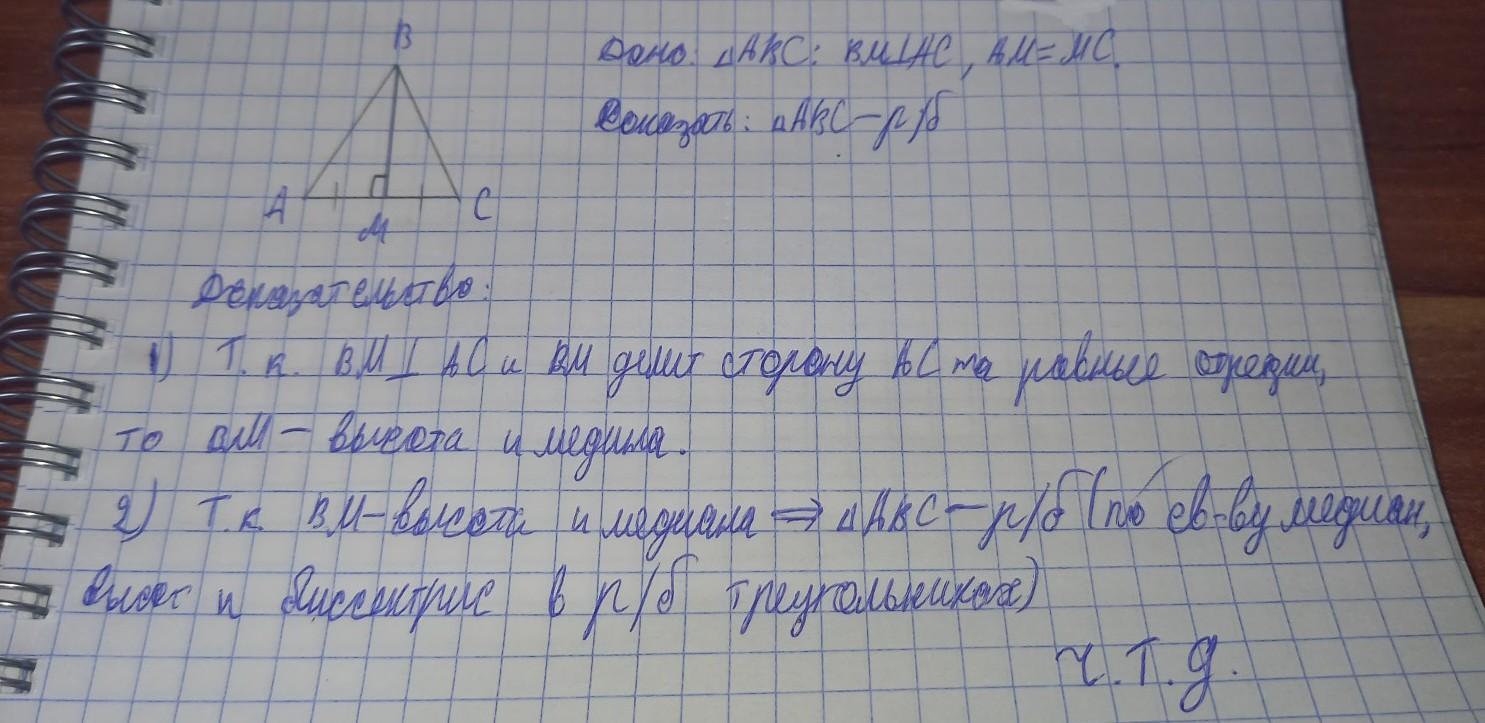 B
Дано: △ABC: BM⊥AC, AM=MC.
Доказать: △ABC-р/б
A
C
M
Доказательство:
1) Т.к. BM⊥AC и BM делит сторону AC на равные отрезки,
то BM - высота и медина.
2) Т.к. BM-высота и медиана ⇒ △ABC-р/б (по св-ву медиан,
высот и биссектрис в р/б треугольниках)
ч.т.д.